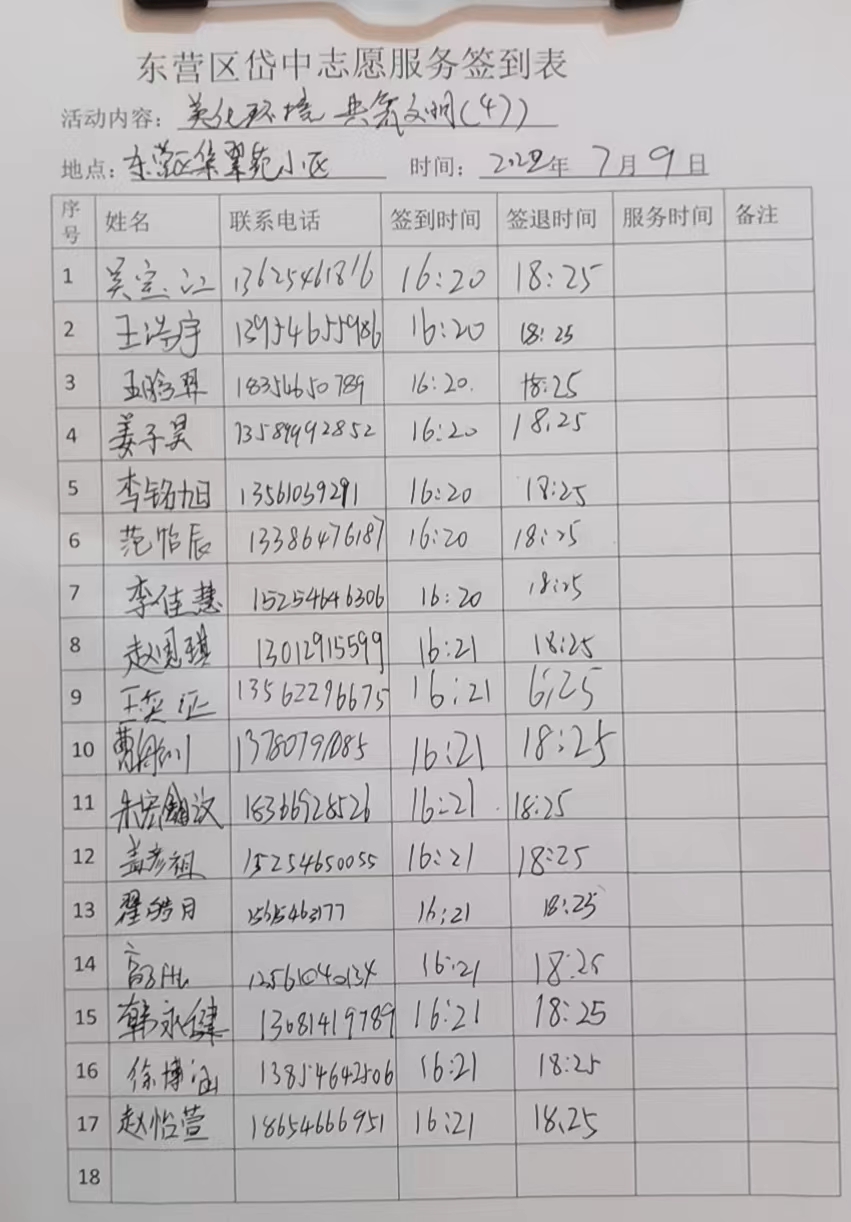 东营区岱中志愿服务签到表
活动内容：美化环境 共筑文明(4))
地点：东营区集翠苑小区 时间：2022年 7月 9日
序号 姓名 联系电话 签到时间 签退时间 服务时间 备注
1 吴 13625461816 16:20 18:25
2 王浩宇 13954655986 16:20 18:25
3 18354650789 16:20. 18:25
4 姜子昊 13589992852 16:20 18.25
5 李铭旭 13561059291 16:20 18:25
6 范怡辰 13386476187 16:20 18:25
7 李佳慧 15254646306 16:20 18:25
8 赵 琪 13012915599 16:21 18:25
9 王奕 13562296675 16:21 6:25
10 曹 16:21 18:25
11 朱宏 18366928526 16:21 18:25
12 盖彦祖 15254650055 16:21 18:25
13 翟皓月 16:21 18:25
14 高 16:21 18:25
15 韩永健 13681419789 16:21 18:25
16 徐博涵 13854642506 16:21 18:25
17 赵怡萱 18654666951 16:21 18.25
18